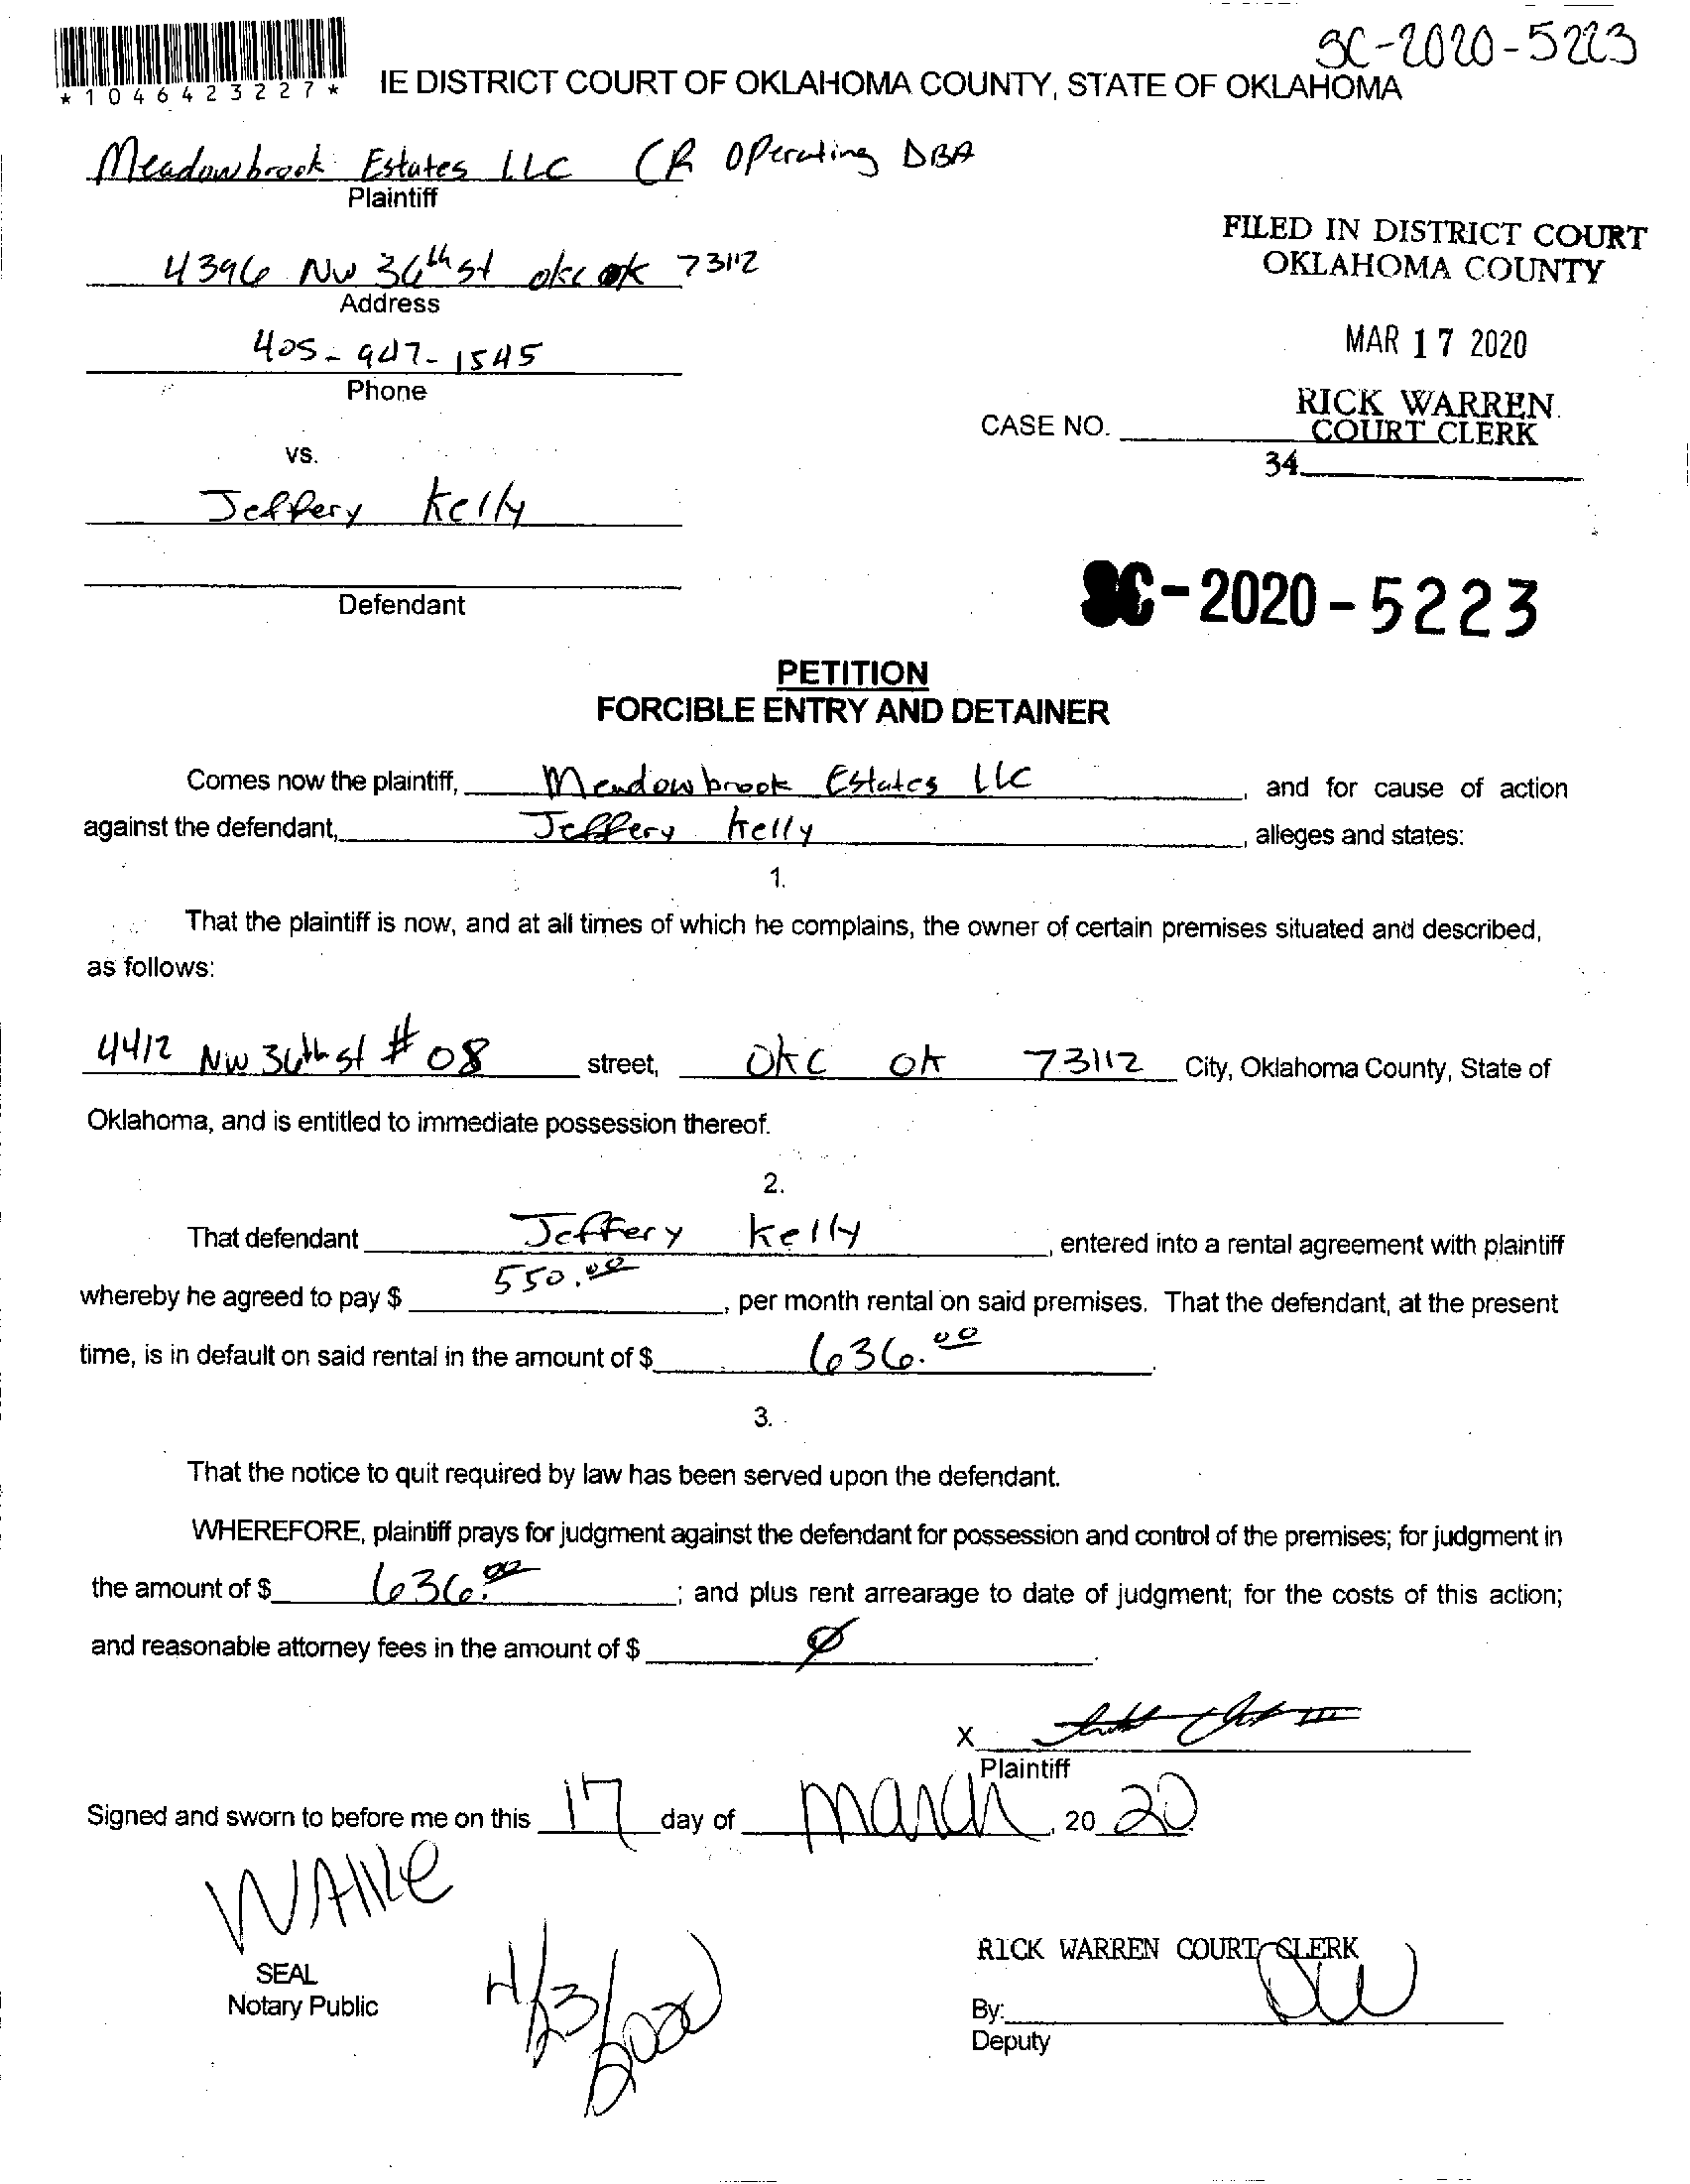 SC-2020-5223
*1046423227*
IE DISTRICT COURT OF OKLAHOMA COUNTY, STATE OF OKLAHOMA
Meadowbrook Estates LLC CR Operating DBA
Plaintiff
FILED IN DISTRICT COURT
OKLAHOMA COUNTY
4396 NW 36th st okc ok 73112
Address
MAR 17 2020
405-947-1545
Phone
RICK WARREN
COURT CLERK
CASE NO.
34
vs.
Jeffery Kelly
Defendant
SC-2020-5223
PETITION
FORCIBLE ENTRY AND DETAINER
Comes now the plaintiff, Meadowbrook Estates LLC, and for cause of action
against the defendant, Jeffery Kelly, alleges and states:
1.
That the plaintiff is now, and at all times of which he complains, the owner of certain premises situated and described,
as follows:
4412 NW 36th st # 08 street, OKC OK 73112 City, Oklahoma County, State of
Oklahoma, and is entitled to immediate possession thereof.
2.
That defendant Jeffery Kelly, entered into a rental agreement with plaintiff
whereby he agreed to pay $ 550.00, per month rental on said premises. That the defendant, at the present
time, is in default on said rental in the amount of $ 636.00.
3.
That the notice to quit required by law has been served upon the defendant.
WHEREFORE, plaintiff prays for judgment against the defendant for possession and control of the premises; for judgment in
the amount of $ 636.00; and plus rent arrearage to date of judgment; for the costs of this action;
and reasonable attorney fees in the amount of $ Ø.
X
Plaintiff
Signed and sworn to before me on this 17 day of March, 20 20
SEAL
Notary Public
4/23/2020
RICK WARREN COURT CLERK
By:
Deputy